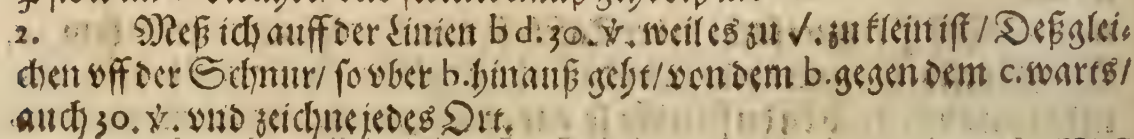 2. Meß ich auff der Linien b d. 30. v. weil es zu √. zu klein ist / Deßglei-
chen vff der Schnur / so vber b. hinauß geht / von dem b. gegen dem c. warts /
auch 30. v. vnd zeichne jedes Ort.